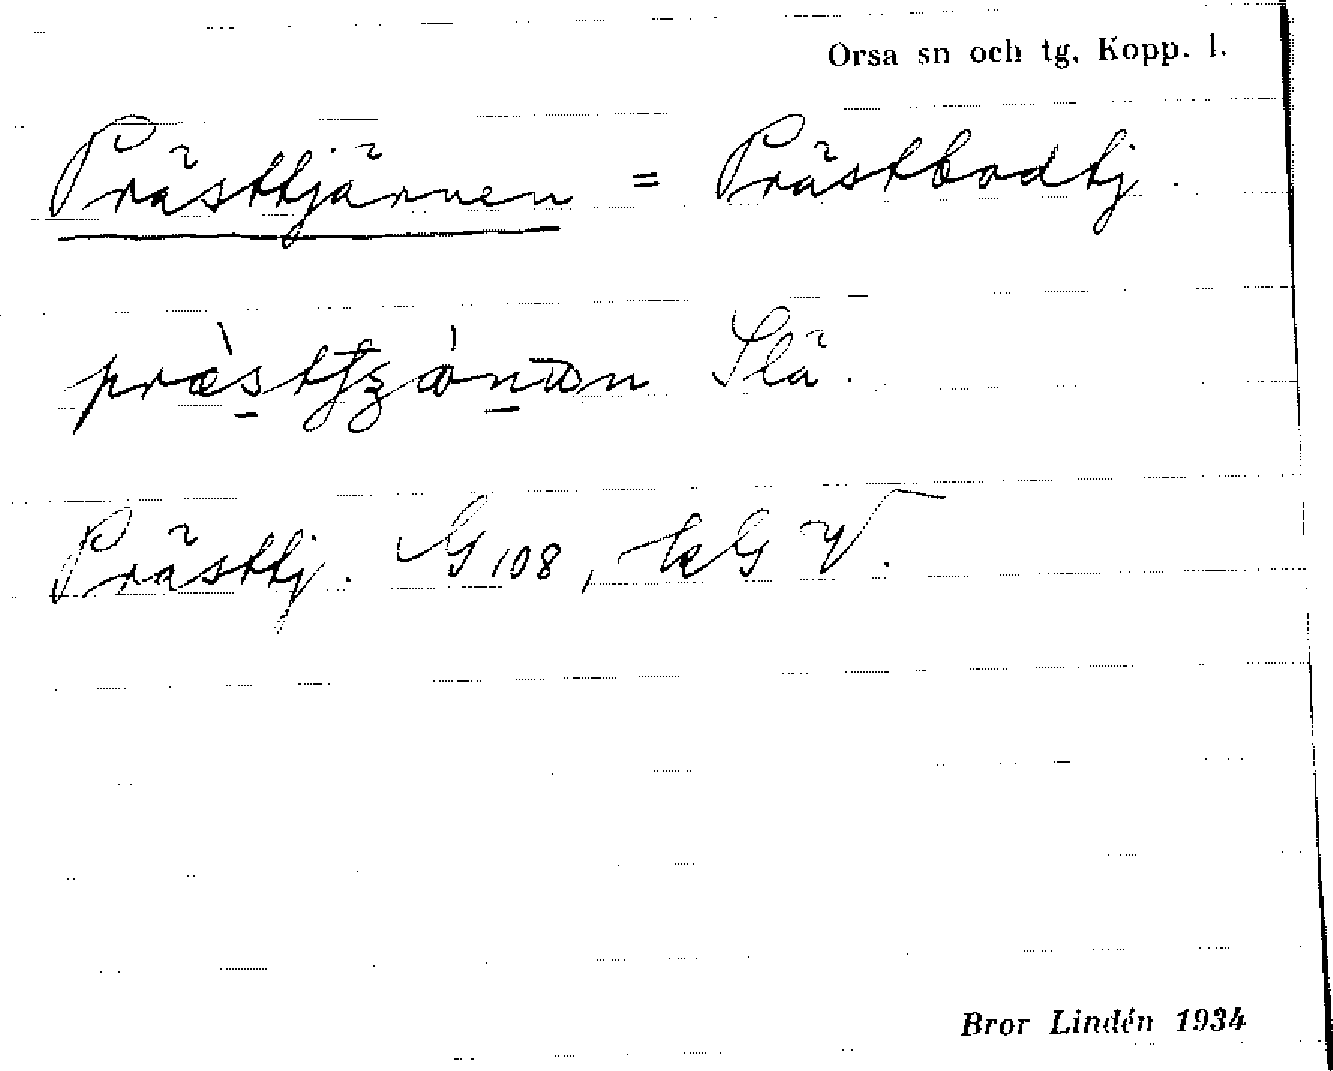 Orsa sn och tg. Kopp. l.
Prästtjärnen = Prästbodtj.
Slä.
Prästtj. G 108, kG V.
Bror Lindén 1934